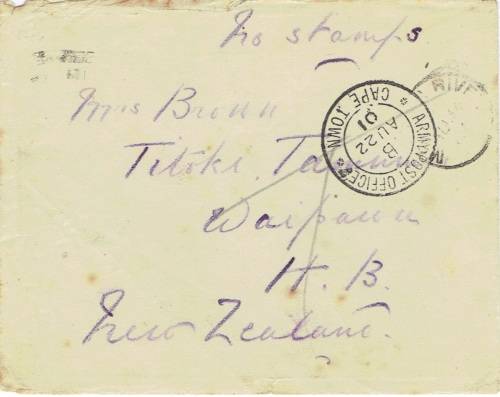 No stamps
Mrs Brown
Titoki
Waipawa
H. B.
New Zealand.
ARMY POST OFFICE
CAPE TOWN
B
AU 22
01
RIVE